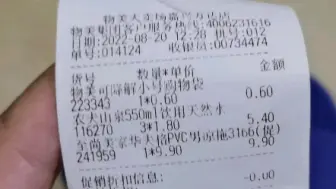 物美大卖场嘉兴万达店
物美集团客户服务热线:4006231616
日期:2022-08-20 12:28 机号:012
单号:014124 收银员:00734474
货号 数量*单价 金额
物美可降解小号购物袋
223343 1*0.60 0.60
农夫山泉550ml饮用天然水
116270 3*1.80 5.40
至尚美豪华大格PVC男凉拖3166(促)
241959 1*9.90 9.90
促销折扣信息:
-0.00